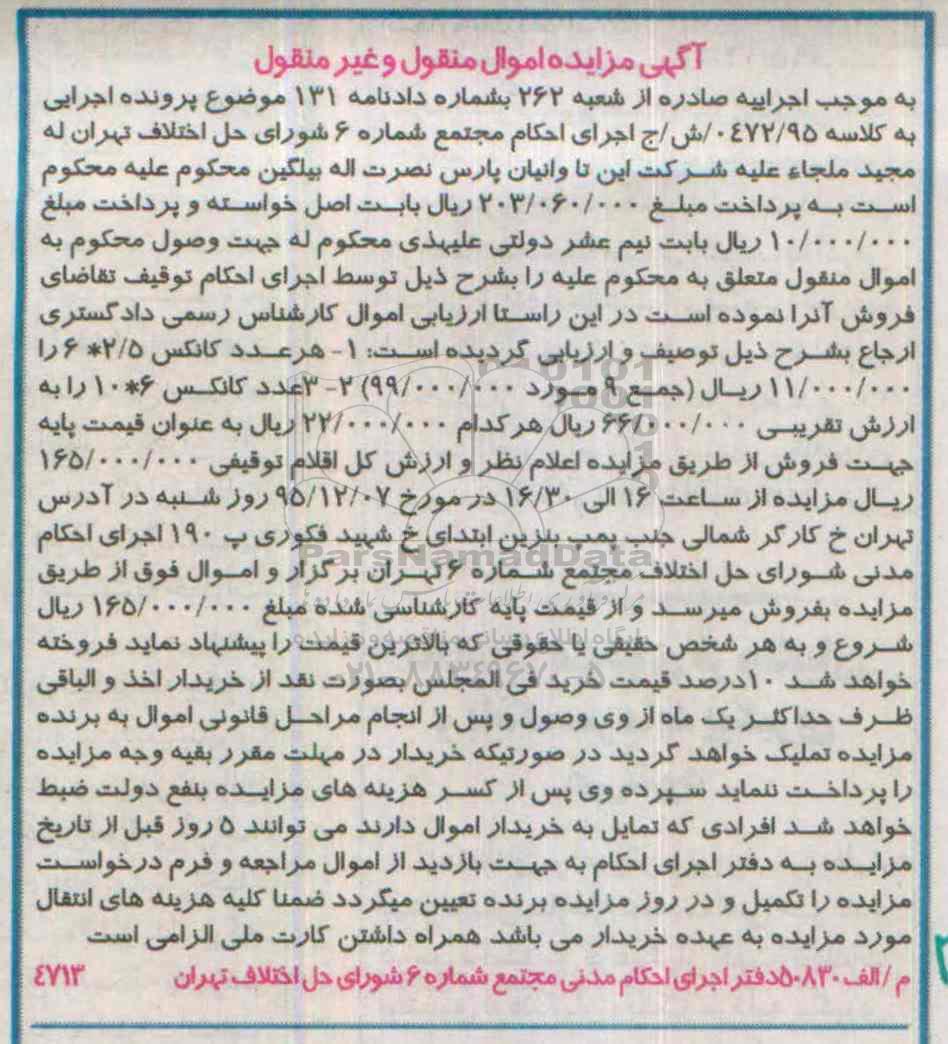 آگهی مزایده اموال منقول و غیر منقول
به موجب اجراییه صادره از شعبه ۲۶۲ بشماره دادنامه ۱۳۱ موضوع پرونده اجرایی
به کلاسه ۰۴۷۲/۹۵/ش/ج اجرای احکام مجتمع شماره ۶ شورای حل اختلاف تهران له
مجید ملجاء علیه شرکت این تا وانیان پارس نصرت اله بیلگین محکوم علیه محکوم
است به پرداخت مبلغ ۲۰۳/۰۶۰/۰۰۰ ریال بابت اصل خواسته و پرداخت مبلغ
۱۰/۰۰۰/۰۰۰ ریال بابت نیم عشر دولتی علیهذی محکوم له جهت وصول محکوم به
اموال منقول متعلق به محکوم علیه را بشرح ذیل توسط اجرای احکام توقیف تقاضای
فروش آنرا نموده است در این راستا ارزیابی اموال کارشناس رسمی دادگستری
ارجاع بشرح ذیل توصیف و ارزیابی گردیده است: ۱- هرعدد کانکس ۲/۵* ۶ را
۱۱/۰۰۰/۰۰۰ ریال (جمع ۹ مورد ۹۹/۰۰۰/۰۰۰) ۲- ۳عدد کانکس ۶*۱۰ را به
ارزش تقریبی ۶۶/۰۰۰/۰۰۰ ریال هر کدام ۲۲/۰۰۰/۰۰۰ ریال به عنوان قیمت پایه
جهت فروش از طریق مزایده اعلام نظر و ارزش کل اقلام توقیفی ۱۶۵/۰۰۰/۰۰۰
ریال مزایده از ساعت ۱۶ الی ۱۶/۳۰ در مورخ ۹۵/۱۲/۰۷ روز شنبه در آدرس
تهران خ کارگر شمالی جنب پمپ بنزین ابتدای خ شهید فکوری پ ۱۹۰ اجرای احکام
مدنی شورای حل اختلاف مجتمع شماره ۶ تهران برگزار و اموال فوق از طریق
مزایده بفروش میرسد و از قیمت پایه کارشناسی شده مبلغ ۱۶۵/۰۰۰/۰۰۰ ریال
شروع و به هر شخص حقیقی یا حقوقی که بالاترین قیمت را پیشنهاد نماید فروخته
خواهد شد ۱۰درصد قیمت خرید فی المجلس بصورت نقد از خریدار اخذ و الباقی
ظرف حداکثر یک ماه از وی وصول و پس از انجام مراحل قانونی اموال به برنده
مزایده تملیک خواهد گردید در صورتیکه خریدار در مهلت مقرر بقیه وجه مزایده
را پرداخت ننماید سپرده وی پس از کسر هزینه های مزایده بنفع دولت ضبط
خواهد شد افرادی که تمایل به خریدار اموال دارند می توانند ۵ روز قبل از تاریخ
مزایده به دفتر اجرای احکام به جهت بازدید از اموال مراجعه و فرم درخواست
مزایده را تکمیل و در روز مزایده برنده تعیین میگردد ضمنا کلیه هزینه های انتقال
مورد مزایده به عهده خریدار می باشد همراه داشتن کارت ملی الزامی است
م /الف ۵۰۸۳۰دفتر اجرای احکام مدنی مجتمع شماره ۶ شورای حل اختلاف تهران ۴۷۱۳
ParsNamadData